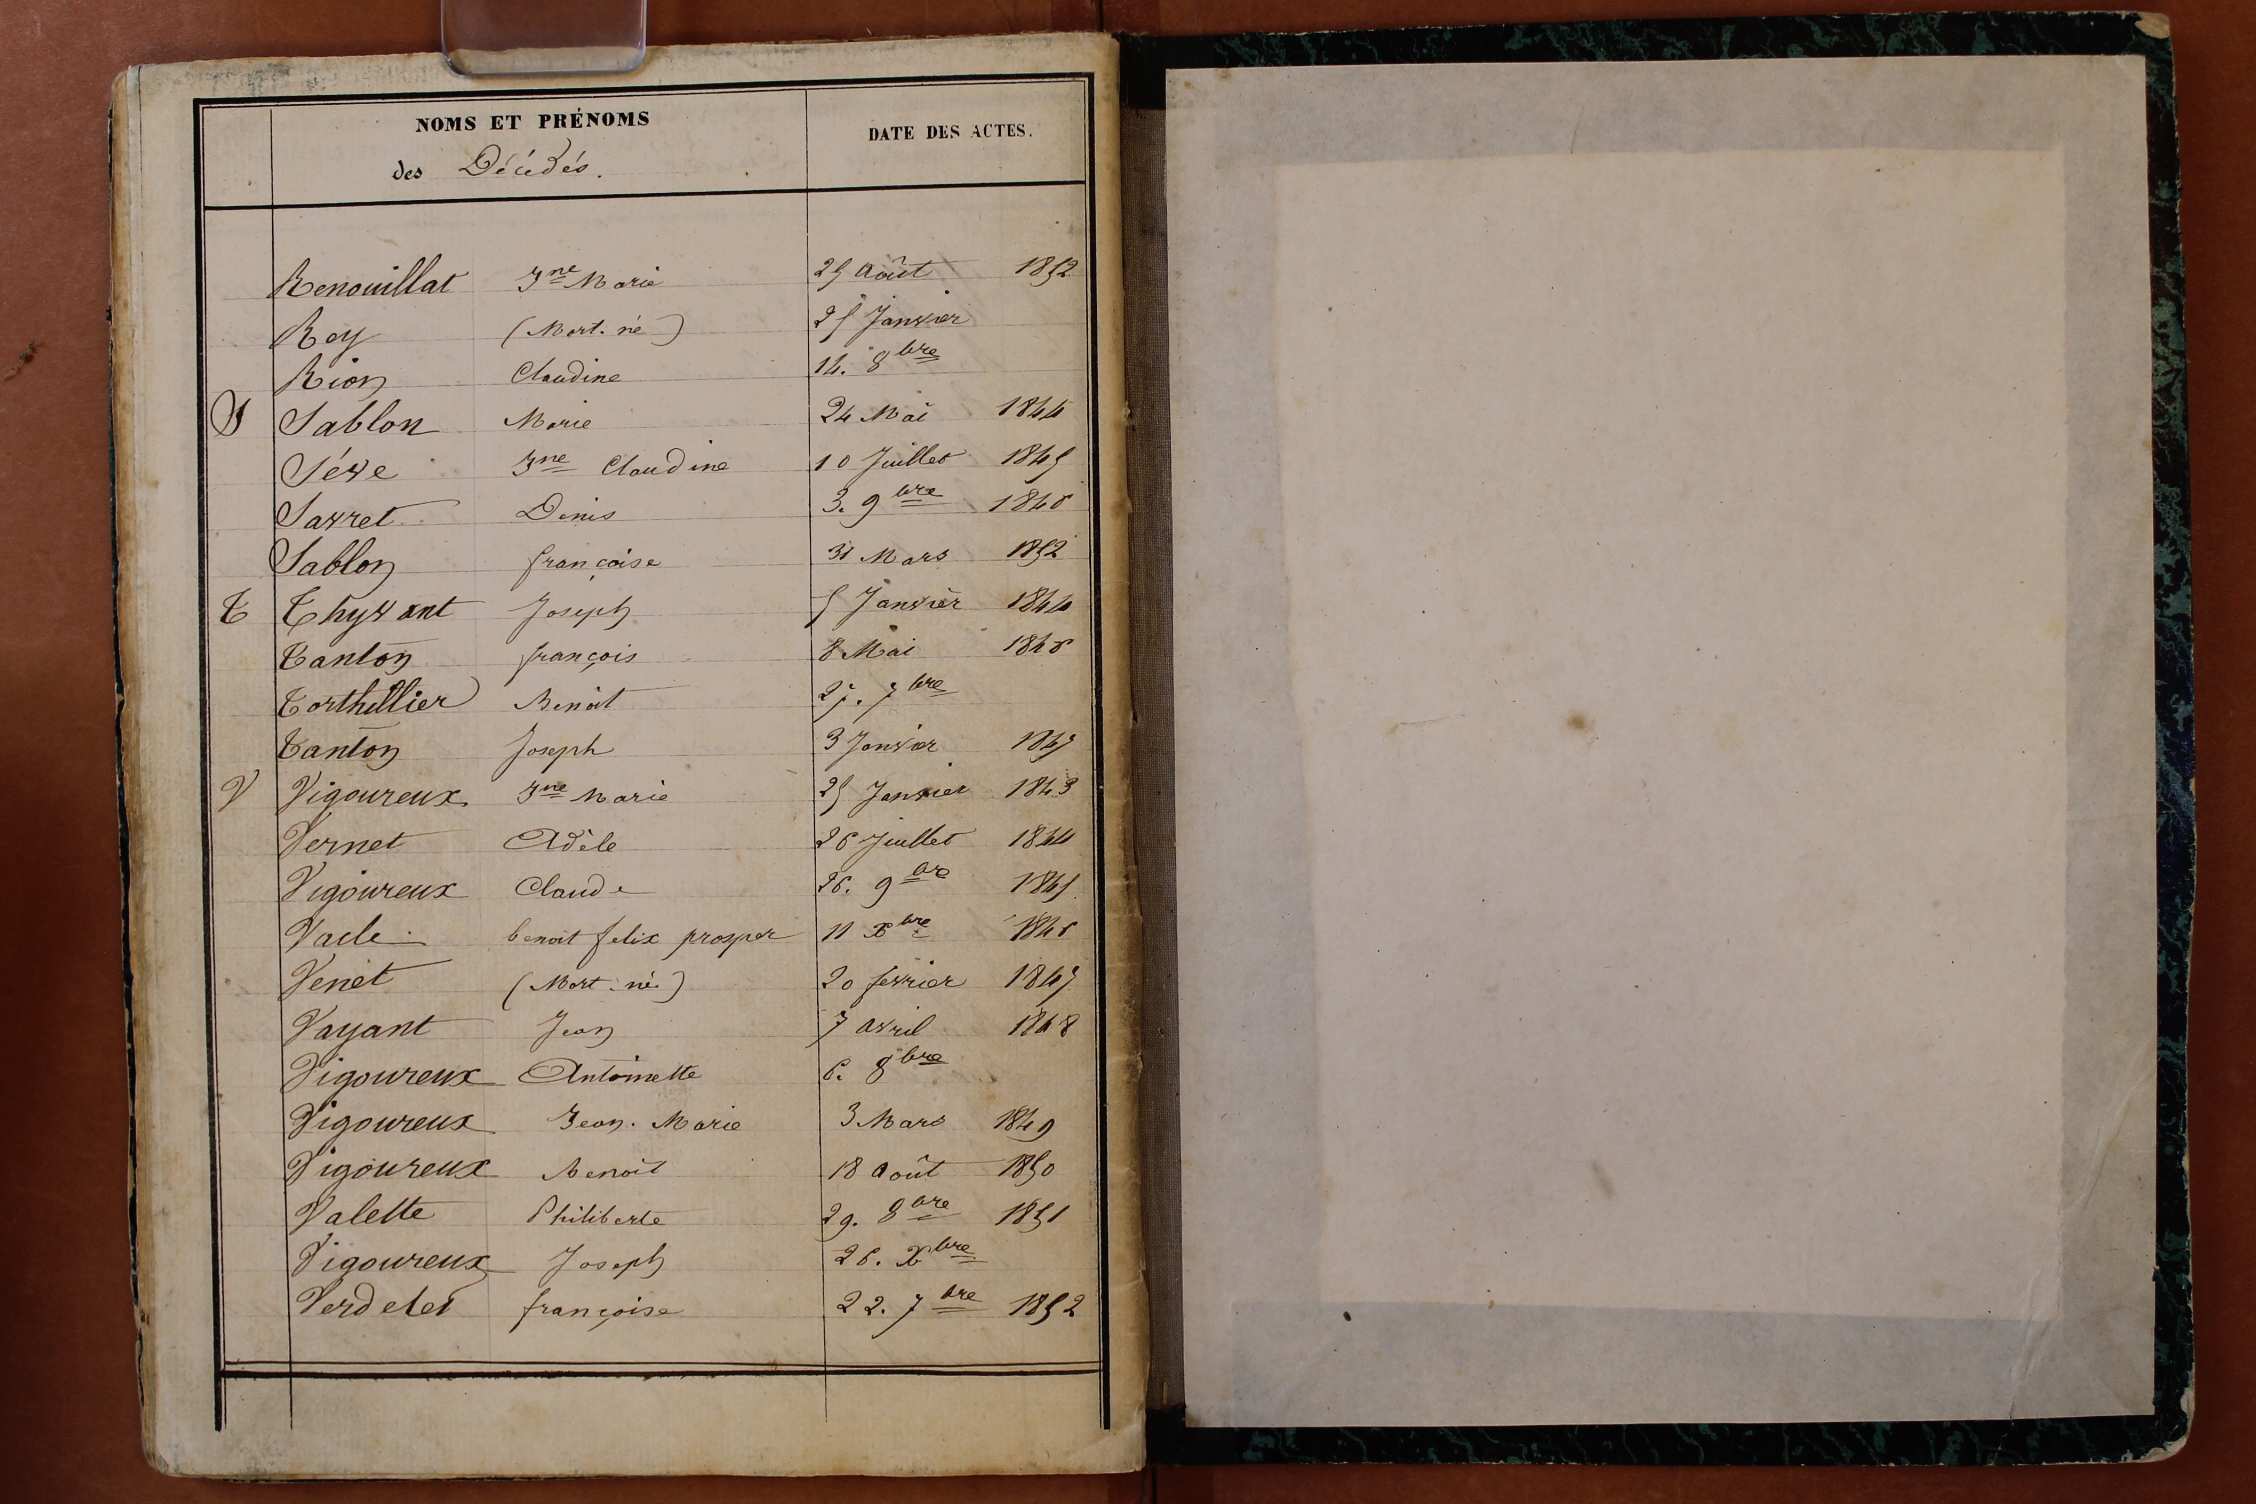 NOMS ET PRÉNOMS DATE DES ACTES.
des Décédés.
Renouillat Jne Marie 25 Août 1852
Rey (Mort. né) 25 Janvier
Rion Claudine 14. 8bre
S Sablon Marie 24 Mai 1844
Séve Jne Claudine 10 Juillet 1845
Savret Denis 3. 9bre 1846
Sablon françoise 31 Mars 1852
T Thyvant Joseph 5 Janvier 1844
Tanton françois 8 Mai 1846
Torthillier Benoit 27. 7bre
Tanton Joseph 3 Janvier 1847
V Vigoureux Jne Marie 25 Janvier 1843
Vernet Adèle 26 Juillet 1844
Vigoureux Claude 26. 9bre 1845
Vacle benoit felix prosper 11 Xbre 1846
Venet (Mort. né) 20 fevrier 1847
Vayant Jean 7 avril 1848
Vigoureux Antoinette 6. 8bre
Vigoureux Jean. Marie 3 Mars 1849
Vigoureux Benoit 18 Août 1850
Valette Philiberte 29. 8bre 1851
Vigoureux Joseph 26. Xbre
françoise 22. 7bre 1852